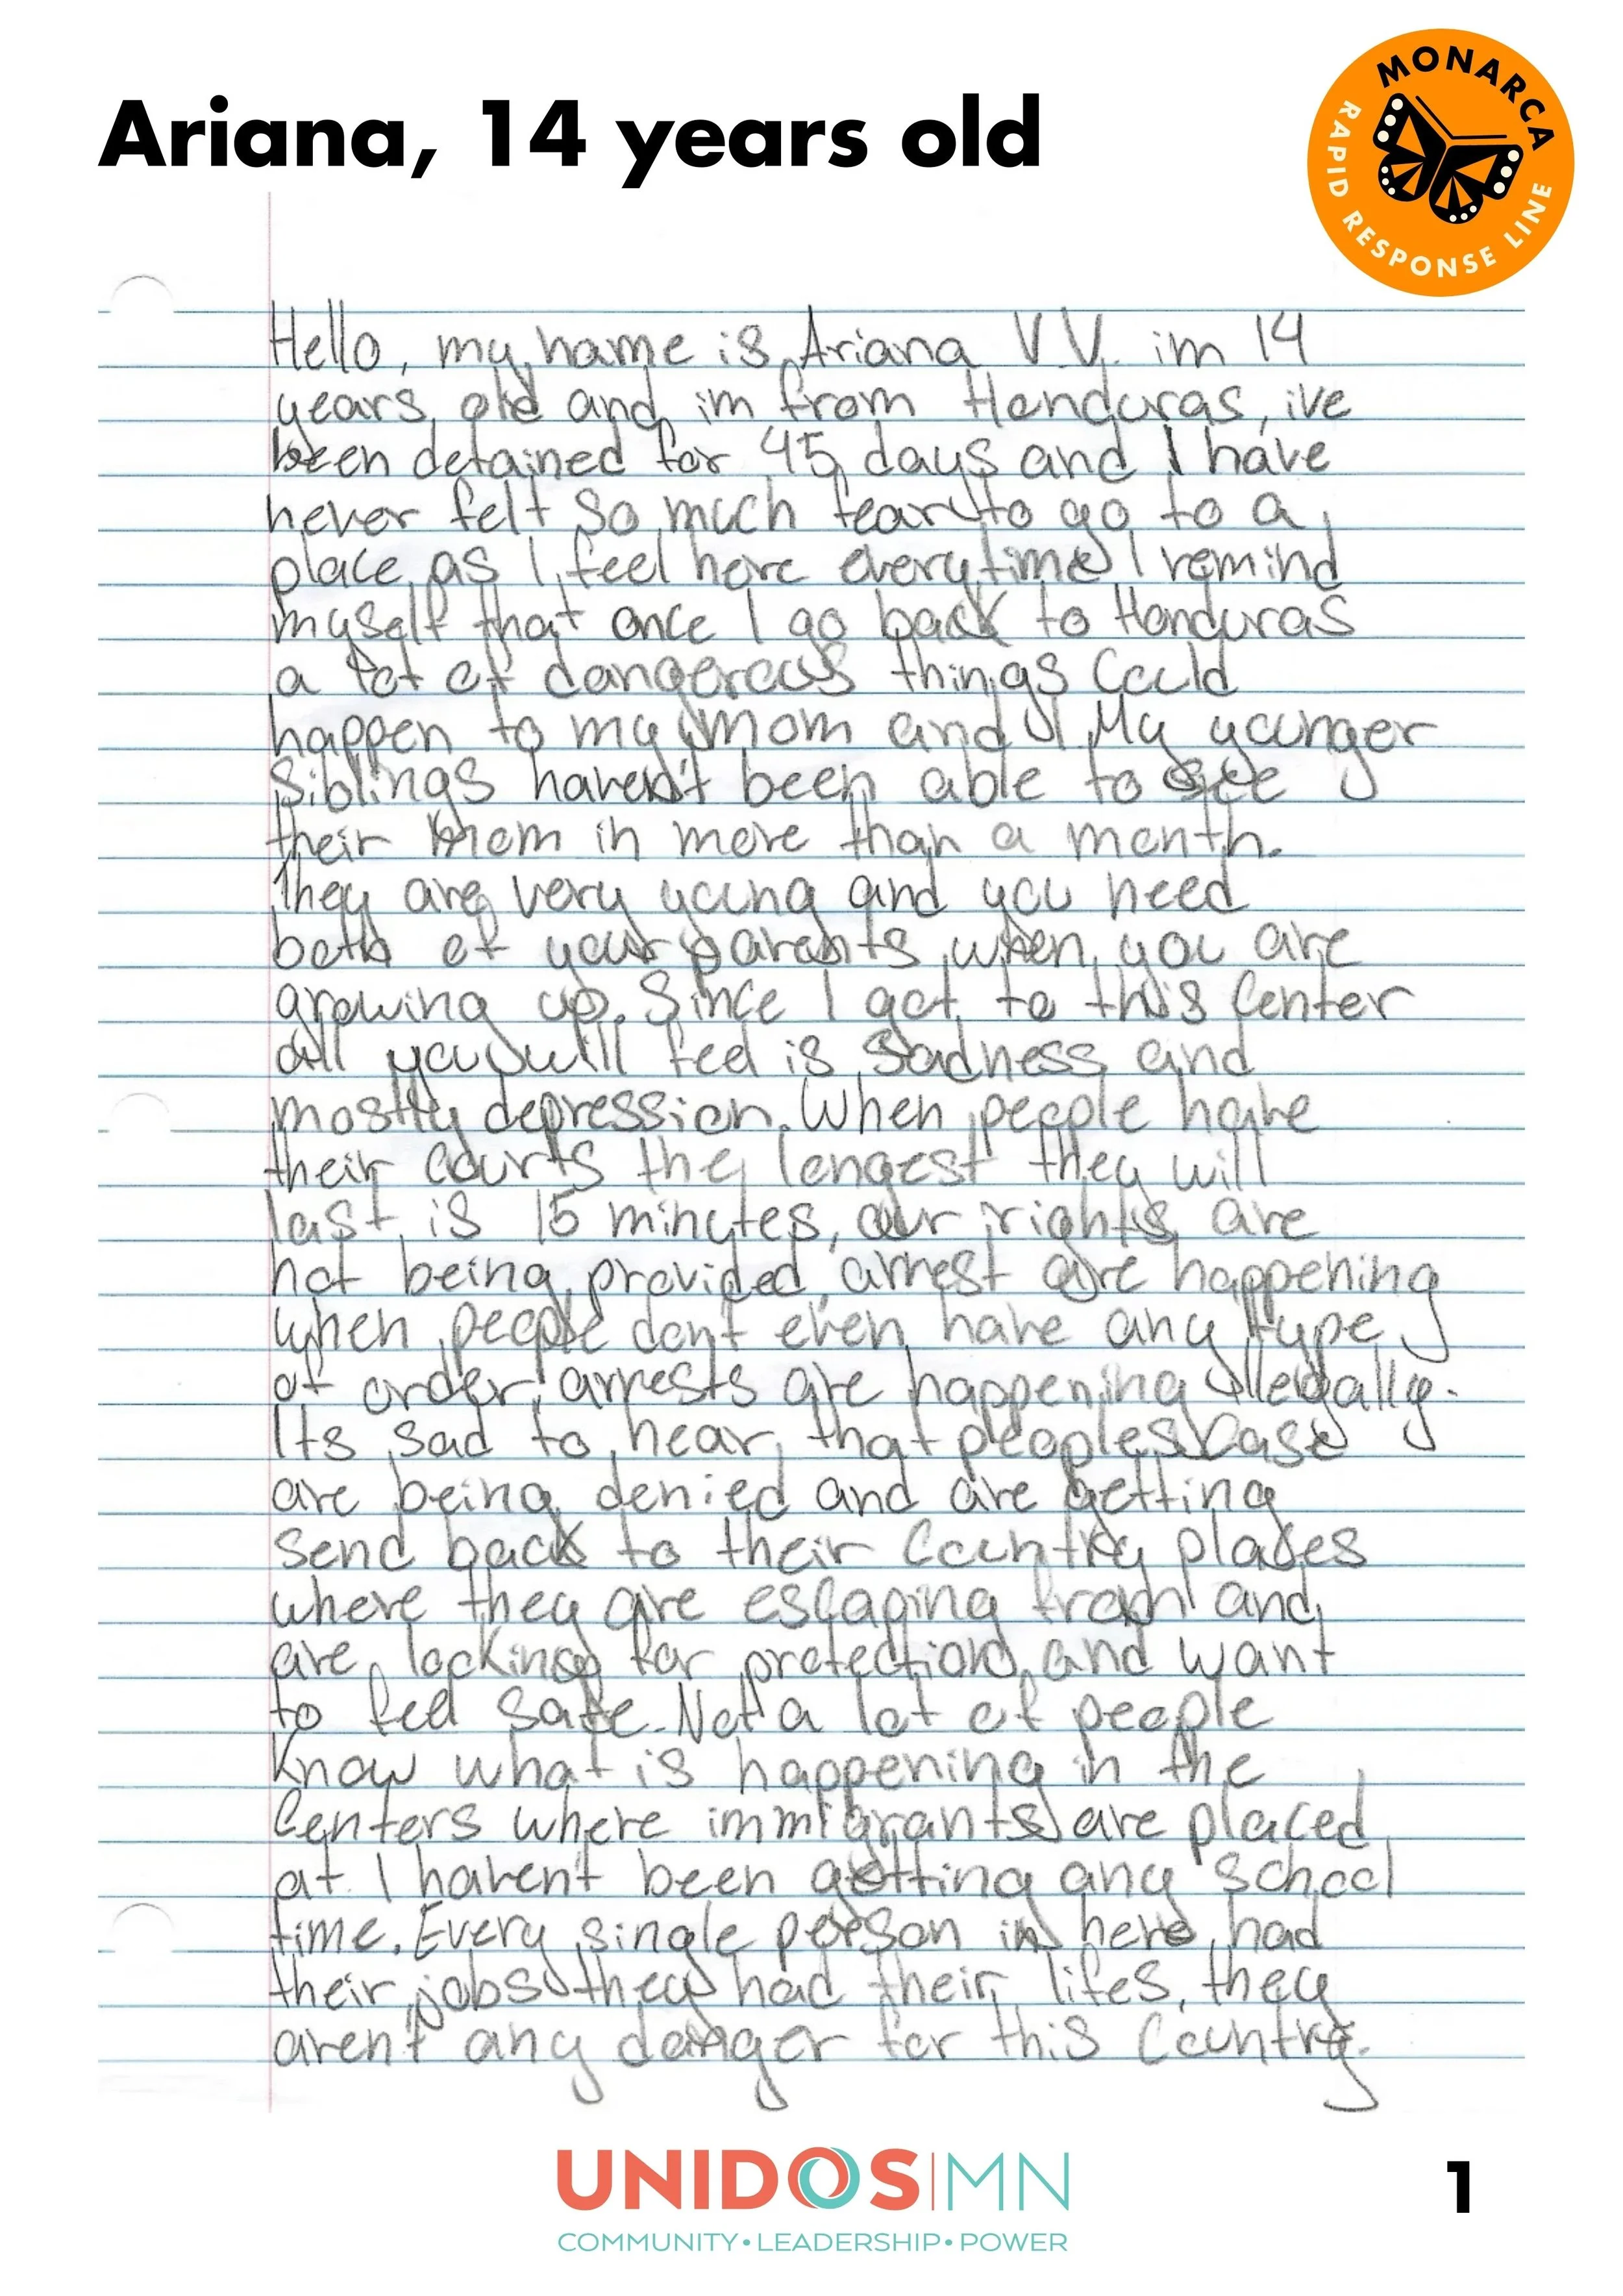 Ariana, 14 years old
MONARCA
RAPID RESPONSE LINE
Hello, my name is Ariana V.V. im 14
years old and im from Honduras, ive
been detained for 45 days and I have
never felt so much fear to go to a
place as I feel here everytime I remind
myself that once I go back to Honduras
a lot of dangerous things could
happen to my mom and I My younger
siblings haven't been able to see
their mom in more than a month.
They are very young and you need
both of your parents when you are
growing up. Since I got to this Center
all you will feel is sadness and
mostly depression. When people have
their courts the longest they will
last is 15 minutes, our rights are
not being provided, arrest are happening
when people don't even have any type
of order, arrests are happening illegally.
Its sad to hear that peoples case
are being denied and are getting
send back to their Country places
where they are escaping from and
are looking for protection and want
to feel safe. Not a lot of people
know what is happening in the
Centers where immigrants are placed
at. I haven't been getting any school
time. Every single person in here had
their jobs they had their lifes, they
aren't any danger for this Country.
UNIDOS|MN
COMMUNITY•LEADERSHIP•POWER
1